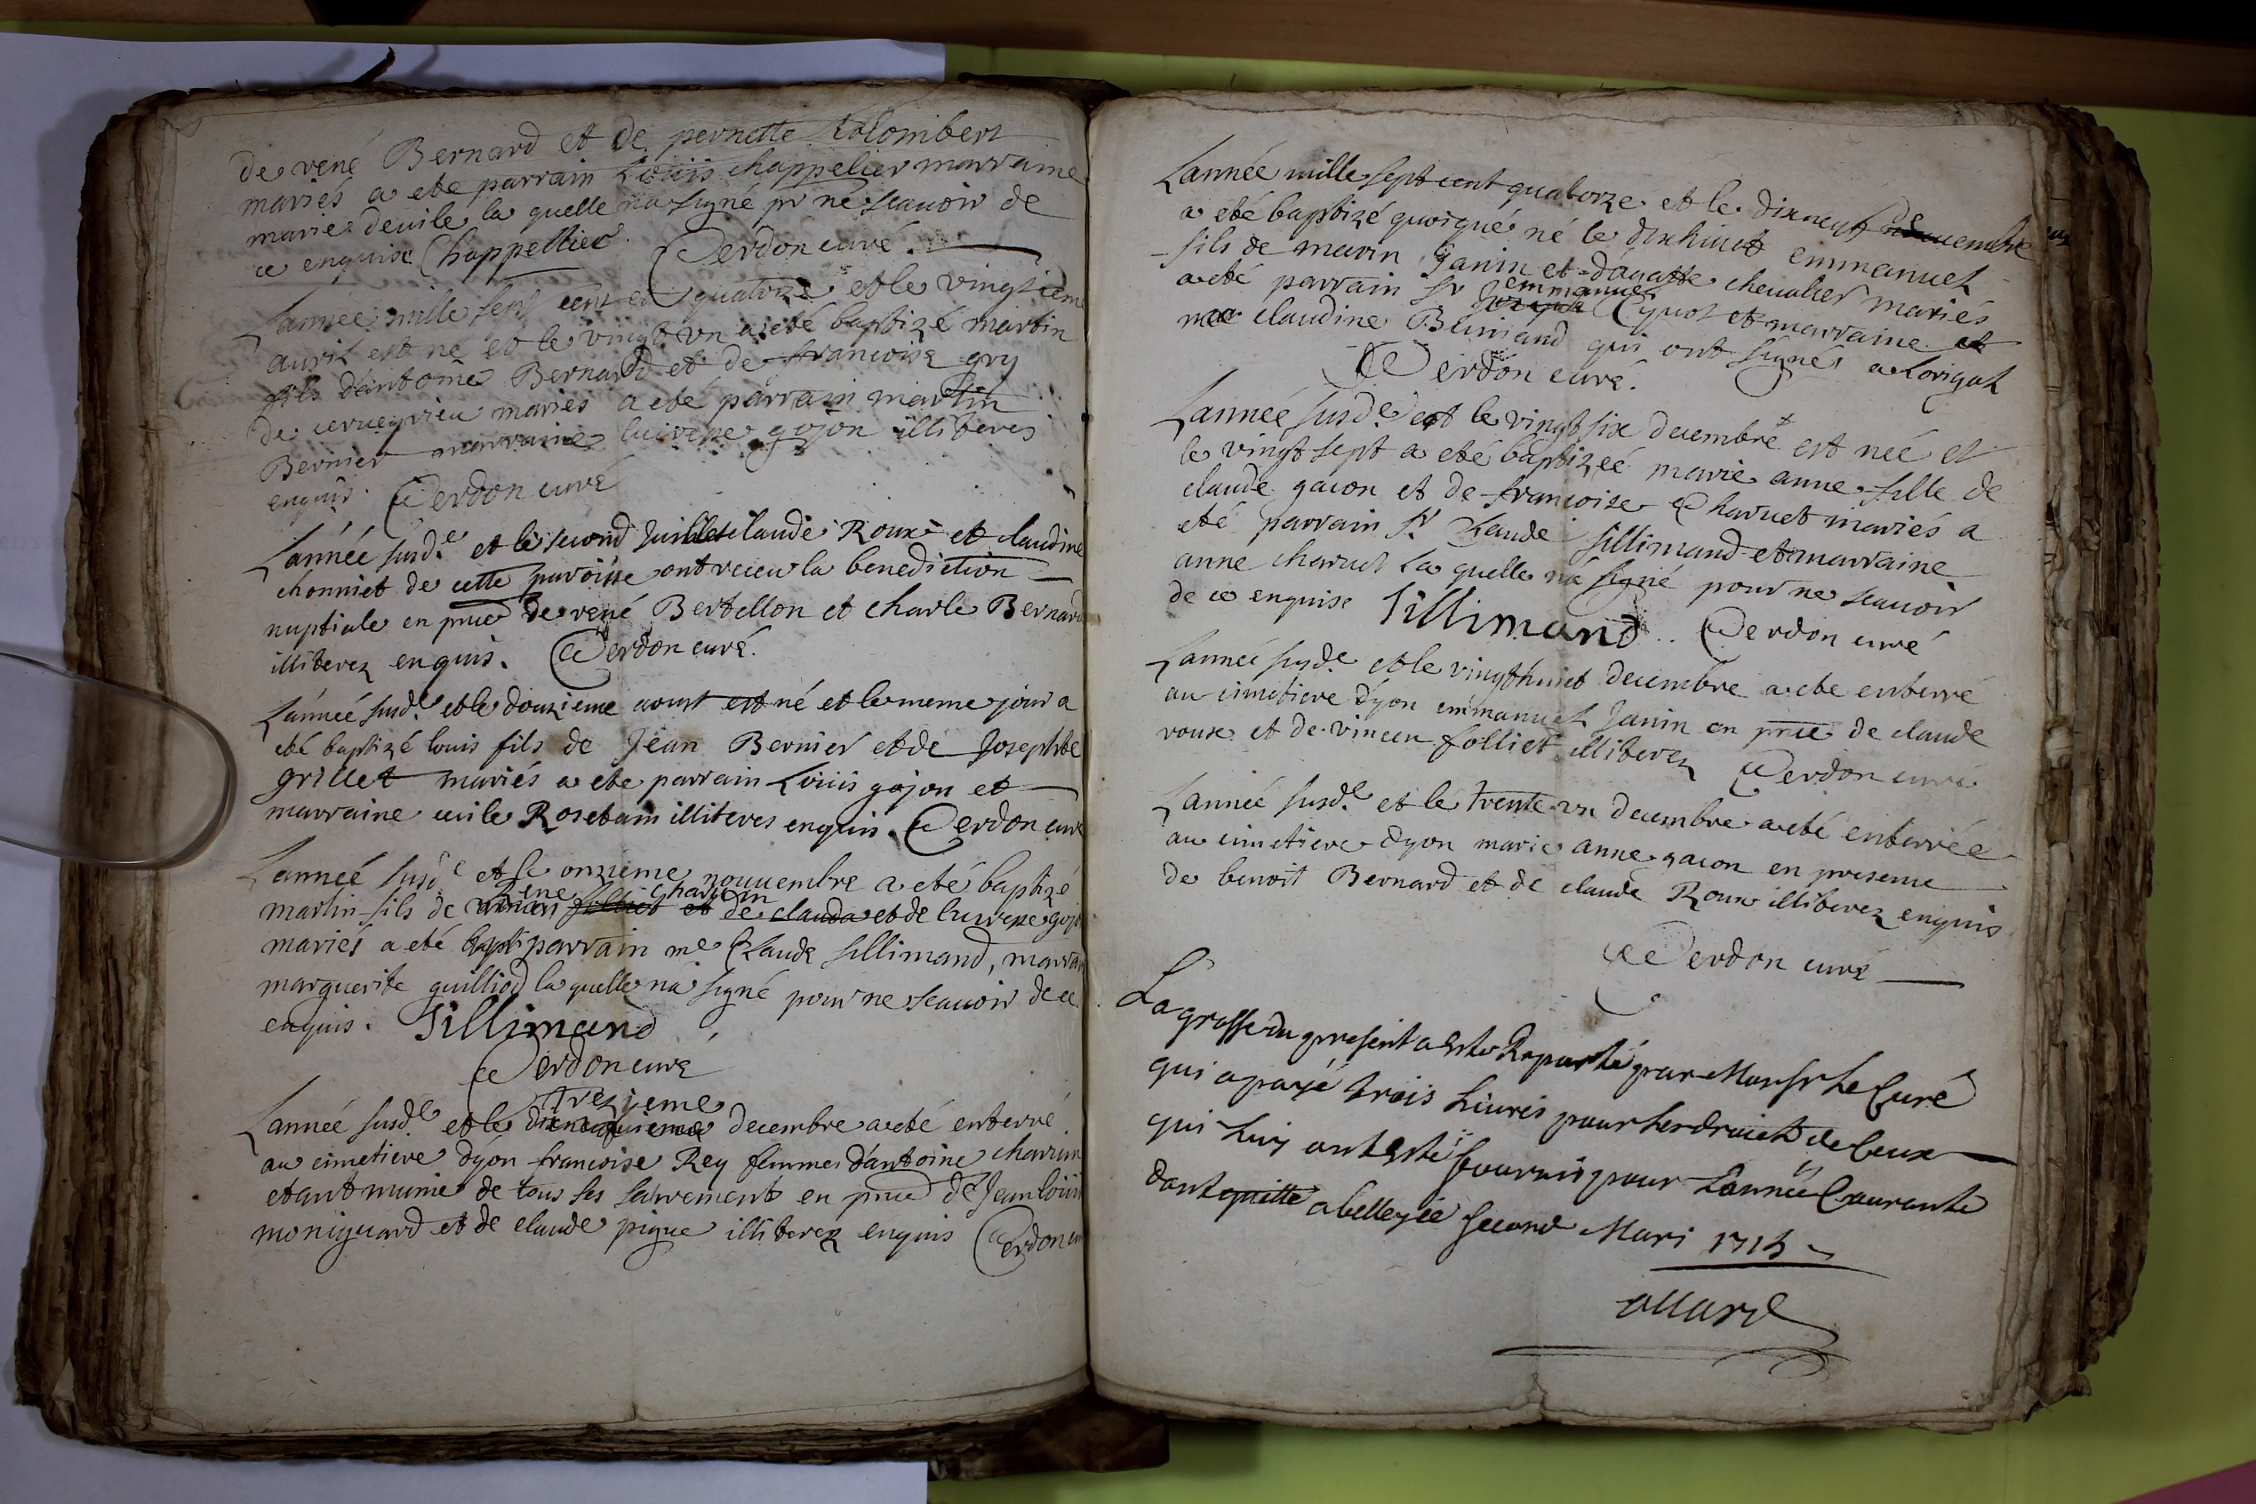 de rené Bernard et de pernette Colombert
mariés a ete parrain Louis chappelier marraine
marie devile la quelle na signé pr ne scauoir de
ce enquise Chappellier. Cerdon curé.
Lannee mille sept cent et quatorze et le vingtieme
auril est né et le vingt vn a eté baptizé martin
fils dantoine Bernard et de francoise gry
de mariés a eté parrain martin
Bernier marraine lucresse gojon illiteres
enquis. Cerdon curé
Lannée susd.e et le second Juillet claude Roux et claudine
chonniet de cette paroisse ont receu la benediction
nuptiale en pnce de rené Bertellon et charle Bernard
illiterez enquis. Cerdon curé.
Lannée susd.e et le douzieme aoust est né et le meme jour a
eté baptizé louis fils de Jean Bernier et de Josephte
grillet mariés a ete parrain Louis gojon et
marraine cecile Rosetain illiteres enquis. Cerdon curé
Lanneé susd.e et le onzieme nouuembre a eté baptizé
rene charion
martin fils de folliet et de clauda et de lucresse gojo
mariés a eté bapt parrain me Claude sillimand, marra
marguerite guilliod la quelle na signé pour ne scauoir de ce
enquis. Sillimand
Cerdon curé
trezieme
Lannée susd.e et le decembre a eté enterré
au cimetiere dyon francoise Rey femme dantoine
etant munie de tous ses sacrements en pnce de Jean louis
moniguard et de claude pigue illiterez enquis Cerdon cu
Lannée mille sept cent quatorze et le dixneuf decembre
a eté baptizé quoique né le dixhuict emmanuel
fils de marin Janin et dagatte chevalier mariés
emmanuel
a eté parrain sr Cyvot et marraine et
claudine Beniand qui ont signés a lorigal
Cerdon curé.
Lanneé susd.e et le vingt six decembre est neé et
le vingt sept a eté baptizeé marie anne fille de
claude gacon et de francoise Charuet mariés a
eté parrain sr. Claude sillimand et marraine
anne charuet la quelle na signé pour ne scauoir
de ce enquise Sillimand .. Cerdon curé
Lanneé susd.e et le vingthuict decembre a ete enterré
au cimetiere dyon emmanuel Janin en pnce de claude
roux et de vincen folliet illiterez Cerdon curé
Lanneé susd.e et le trente vn decembre a eté enterrée
au cimetiere dyon marie anne gacon en presence
de benoit Bernard et de claude Roux illiterez enquis
Cerdon curé
La grosse du present a este Raporté par Monsr Le Curé
qui a payé trois Liures pour les droicts de Ceux
qui Luy ont esté fournis pour Lannée Courante
dont quitte a belley ce second Mars 1715
allard